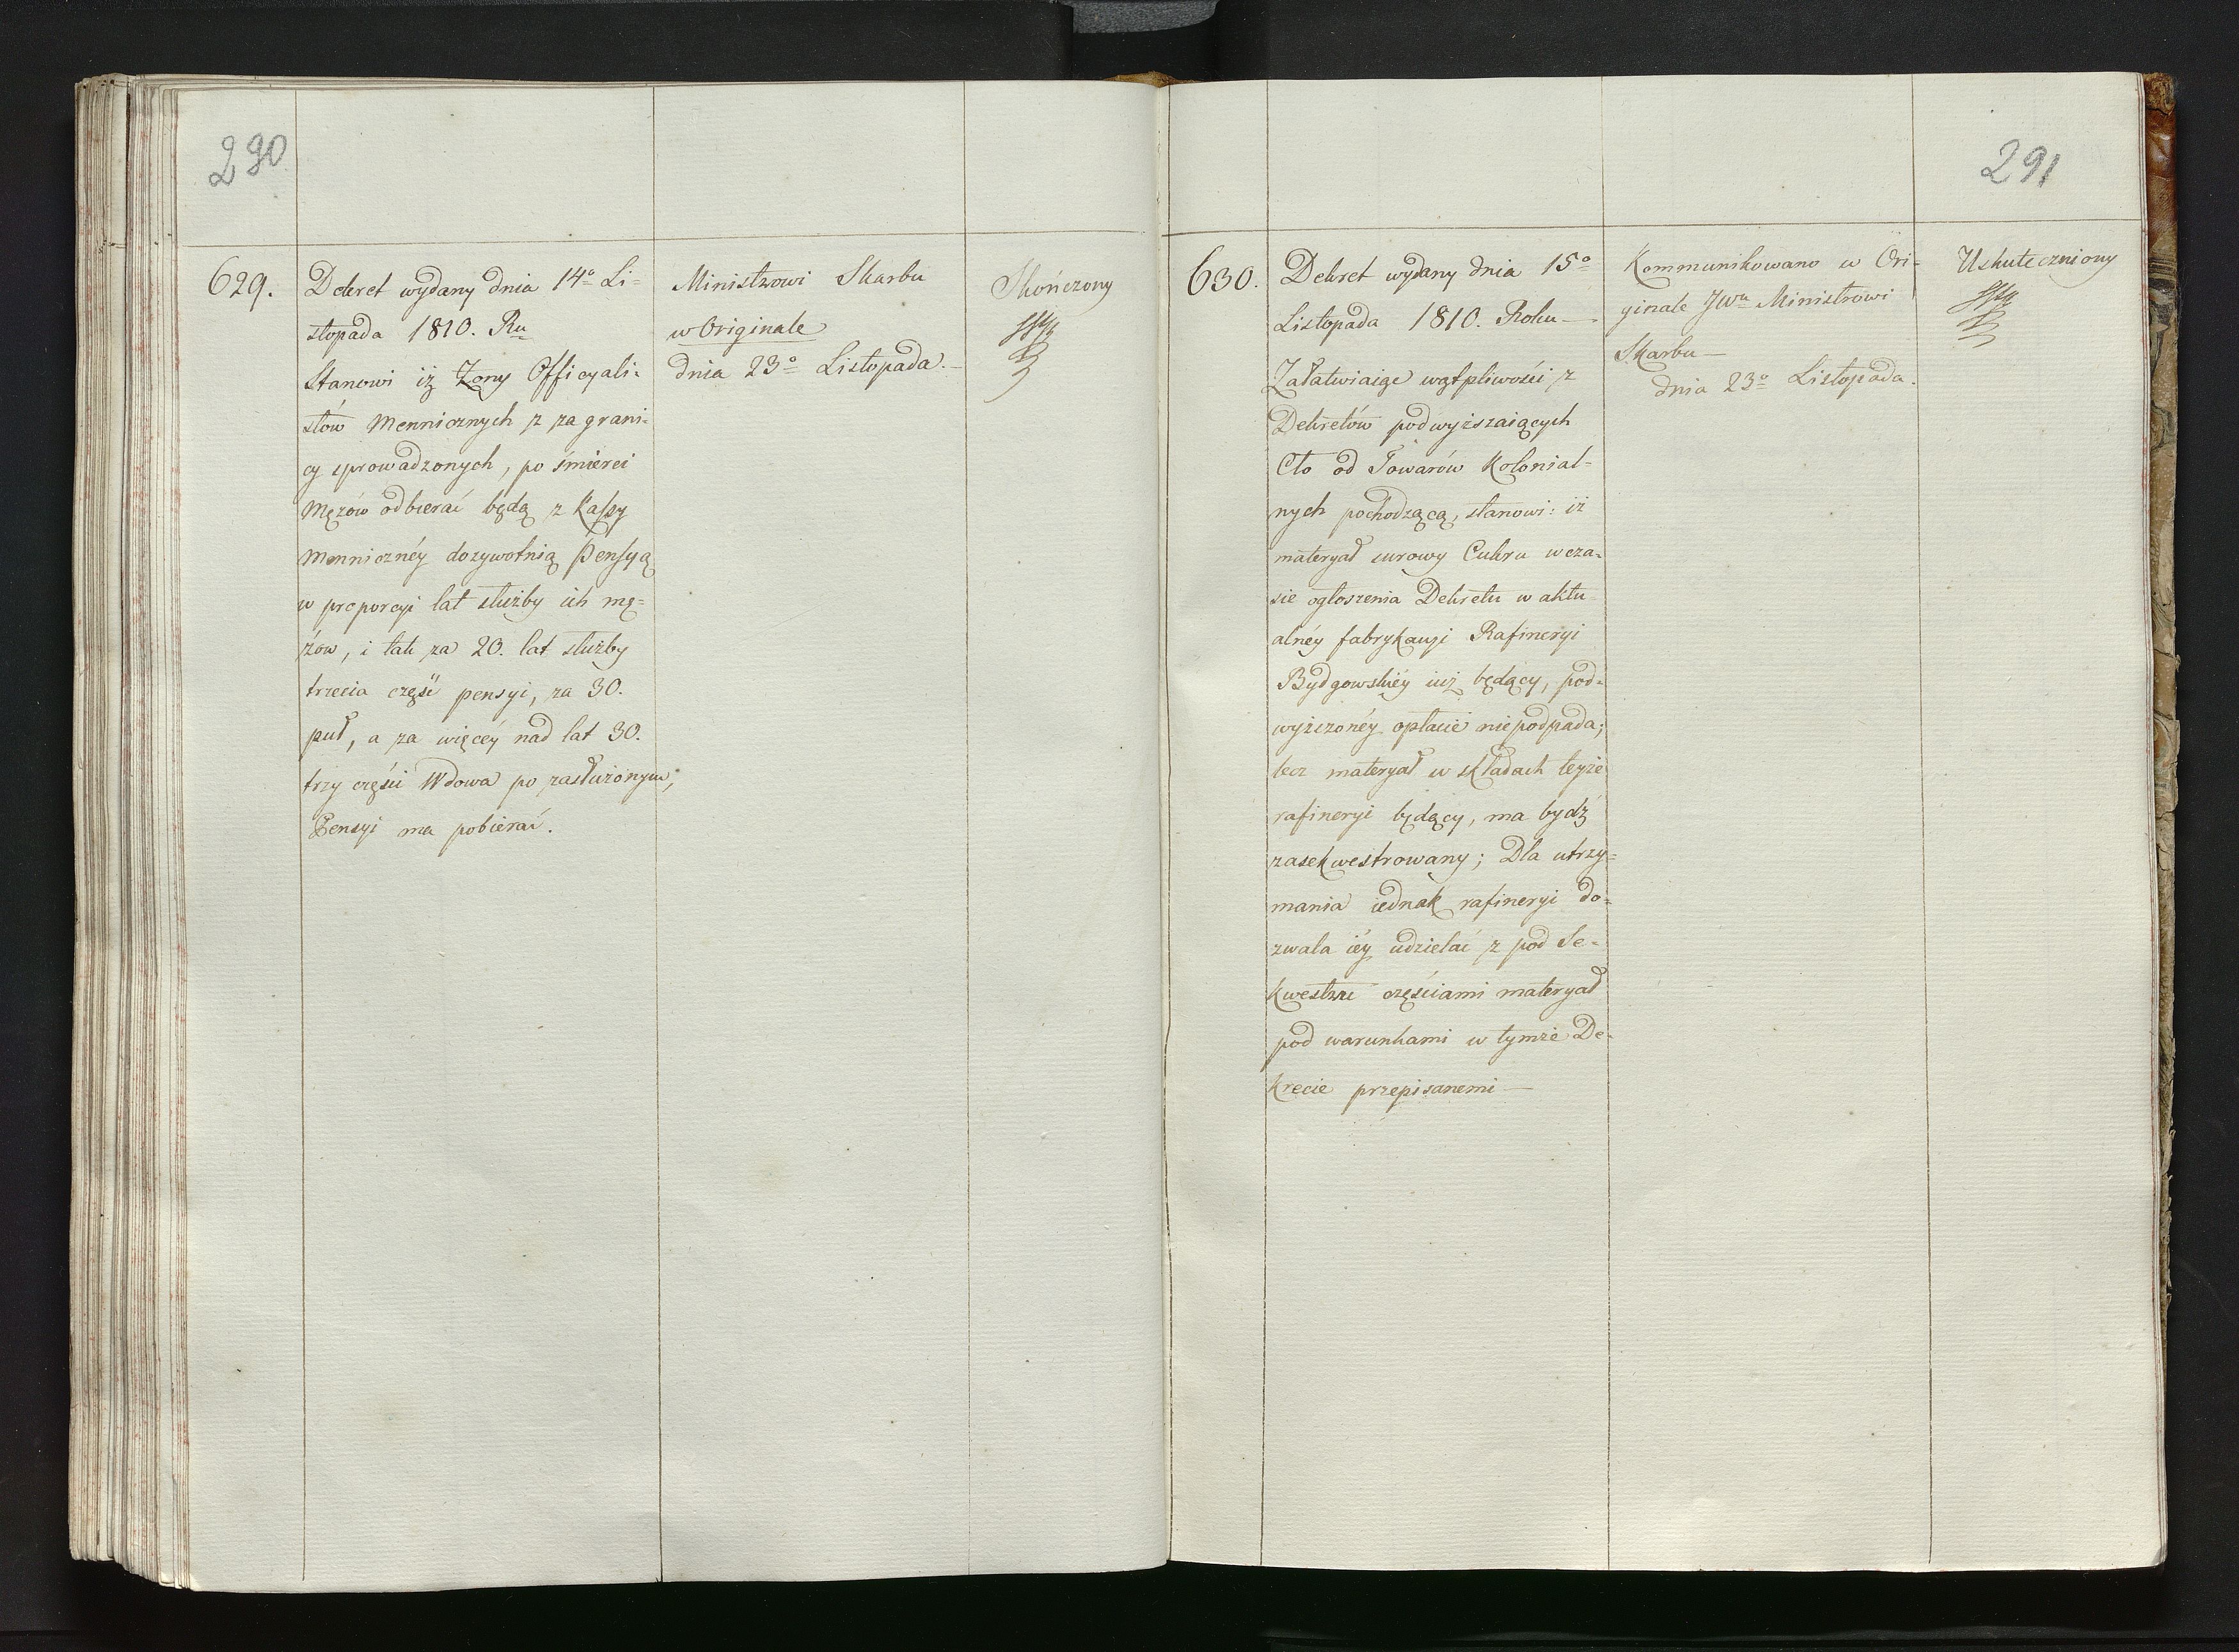 290
629.
Dekret wydany dnia 14º Li=
stopada 1810. Ru
Stanowi iż Zony Officyali=
stów Mennicznych z za grani=
cy sprowadzonych, po śmierci
Mężów odbierać będą z Kassy
Mennicznéy dozywotnią Pensyą
w proporcyi lat służby ich mę=
żów, i tak za 20. lat służby
trzecia część pensyi, za 30.
puł, a za więcéy nad lat 30.
trzy części Wdowa po zasłużonym,
Pensyi ma pobierać.
Ministrowi Skarbu
w Originale
dnia 23º Listopada.
Skończony
291
630.
Dekret wydany dnia 15º
Listopada 1810. Roku —
Załatwiaiąc wątpliwości z
Dekretów podwyższaiących
Cło od Towarów Kolonial=
nych pochodzącą, stanowi: iż
materyał surowy Cukru w cza=
sie ogłoszenia Dekretu w aktu
alnéy fabrykacyi Rafineryi
Bydgowskiéy iuż będący, pod=
wyższonéy opłacie niepodpada;
lecz materyał w składach teyże
rafineryi będący, ma bydź
zasekwestrowany; Dla utrzy=
mania iednak rafineryi do=
zwala iéy udzielać z pod Se=
kwestru częściami materyał
pod warunkami w tymże De=
krecie przepisanemi —
Kommunikowano w Ori=
ginale JWu Ministrowi
Skarbu —
dnia 23º Listopada.
Uskuteczniony